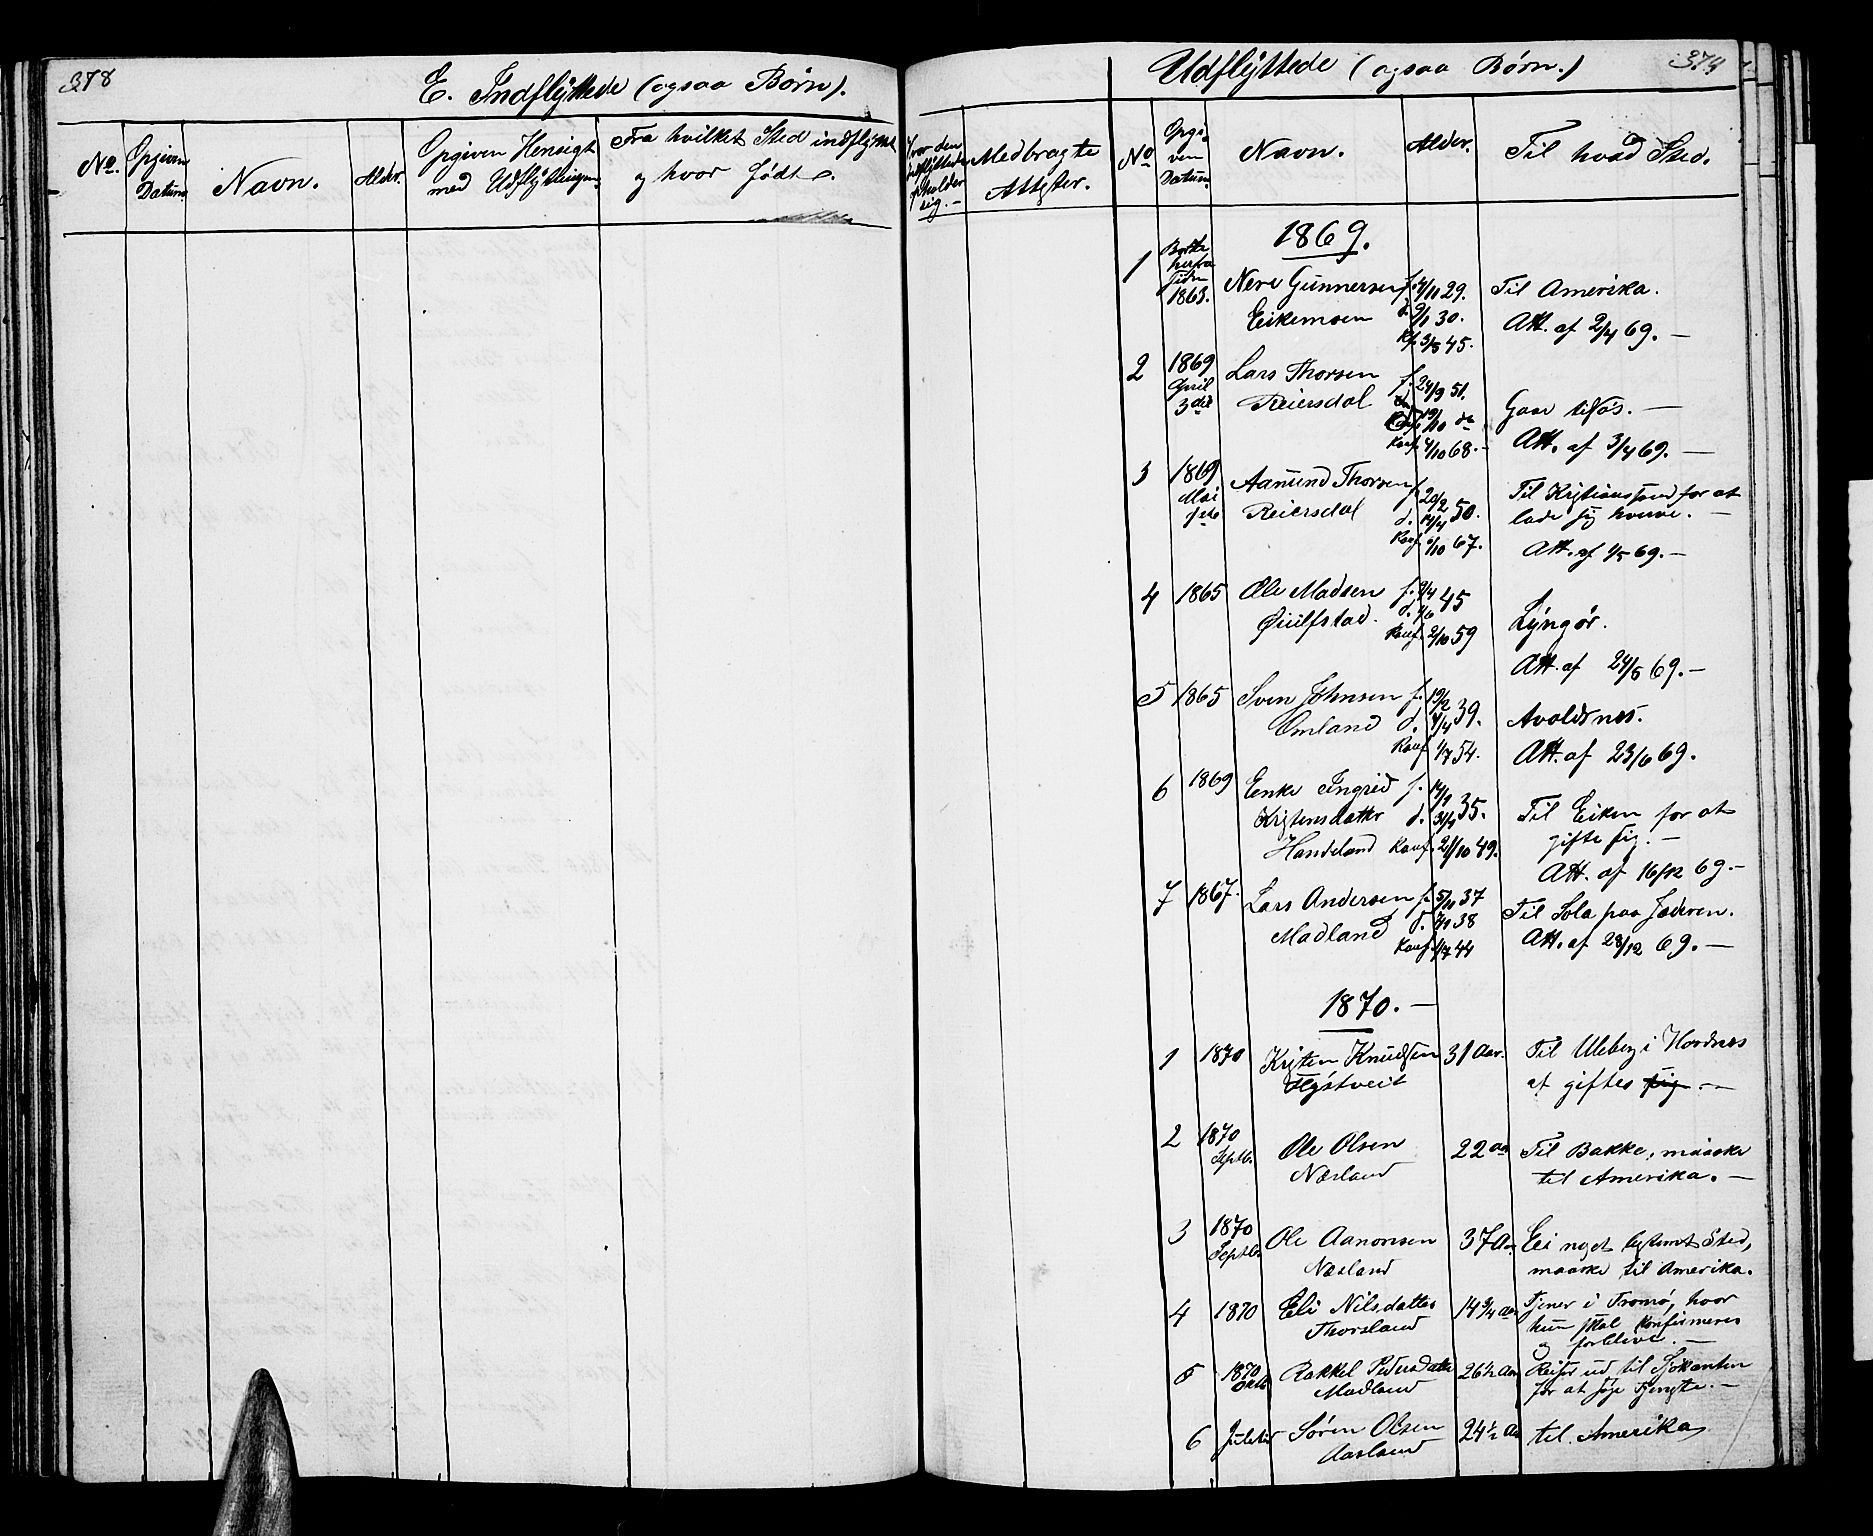 378
E. Indflyttede (ogsaa Børn).
No.
Opgiven Datum.
Navn.
Alder.
Opgiven Hensigt med Udflytningen.
Fra hvilket Sted indflyttet og hvor født.
Hvor den indflyttede opholder sig. –
Medbragte Attester.
Udflyttede (ogsaa Børn.)
379
No
Opgiven Datum.
Navn.
Alder.
Til hvad Sted.
1869.
1 Borte herfra siden 1863. Gunnersen f. 29. Til Amerika.
Eikemoen d. 30. Att. af 2/4 69. –
Kf. 3/5 45.
2 1869 Lars Thorsen f. 24/9 51.
April 3die Reiersdal Gaar –
Konf. 4/10 68. – Att. af 3/4 69. –
3 1869 Aanund Thorsen f. 20/2 Til Kristianssand for at
Mai Reiersdal d. 14/4 50. lade sig hverve. –
Konf. 67. Att. af 1/5 69. –
4 1865 Ole Madsen f. 9/4 45
Øiulfstad. d. Lyngør.
Konf. 2/10 59
Att. af 24/5 69. –
5 1865 Sven Johnsen f. 19/2
Omland d. 4/4 39. Avoldsnes.
Konf. 1/7 54. Att. af 23/6 69.
6 1869 Enke Ingrid f. 14/1
Kristensdatter d. 31/4 35. Til Eiken for at
Haadeland Konf. 21/10 49. gifte sig. –
Att. af 16/12 69. –
7 1867. Lars Andersen f. 5/11 37
Madland d. 38 Til Sola paa Jæderen.
Konf. 44 Att. af 28/12 69. –
1870. –
1 1870 Kristen Knudsen 31 Aar. Til Uleberg i Hordnes
at giftes sig. –
2 1870 Ole Olsen 22 Til Bakke, maaske
Septb. Næsland til Amerika. –
3 1870 Ole Aanonsen 37 Aar Ei noget bestemt Sted,
Septb. Næsland maaske til Amerika.
4 1870 Eli Nilsdatter 14 3/4 Aar Tjener i Tromø, hvor
Thorsland hun skal konfirmeres
og forblive. –
5 1870 Rakkel Pedersdatter 26 1/2 Aar Reiser ud til Sjøkanten
Oktb. Madland for at søge Tjeneste. –
6 Juletid Søren Olsen 24 1/2 Aar til Amerika
Aasland